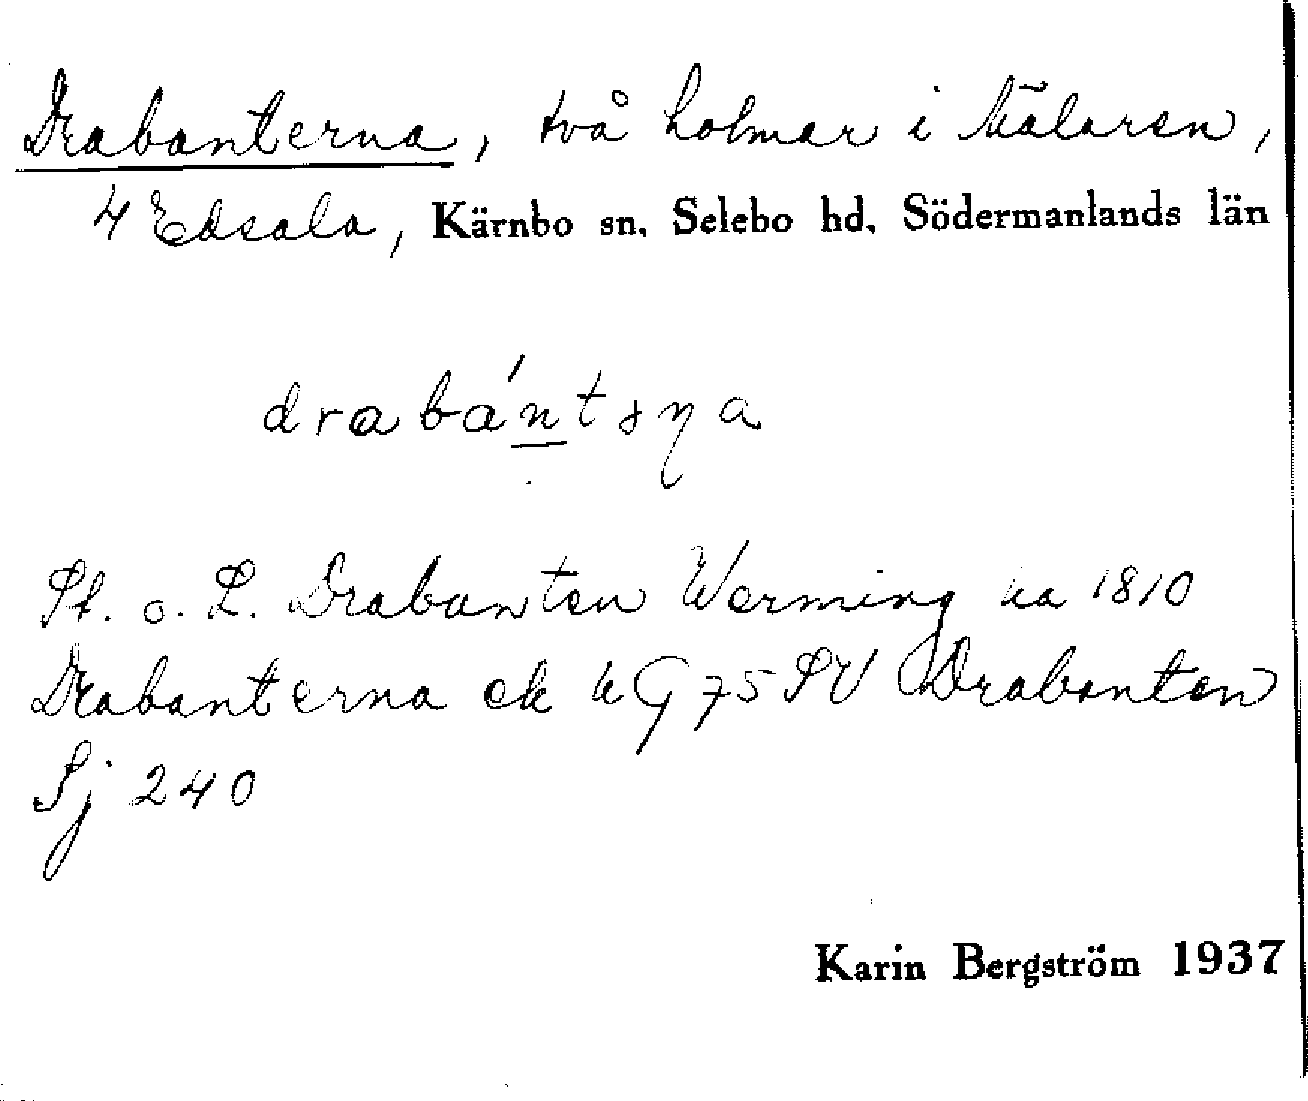 Drabanterna, två holmar i Mälaren,
4 Edsala, Kärnbo sn. Selebo hd. Södermanlands län
drabántsɳa
St. o. L. Drabanten Werming ka 1810
Drabanterna ek k G 75 SV Drabanten
Sj 240
Karin Bergström 1937